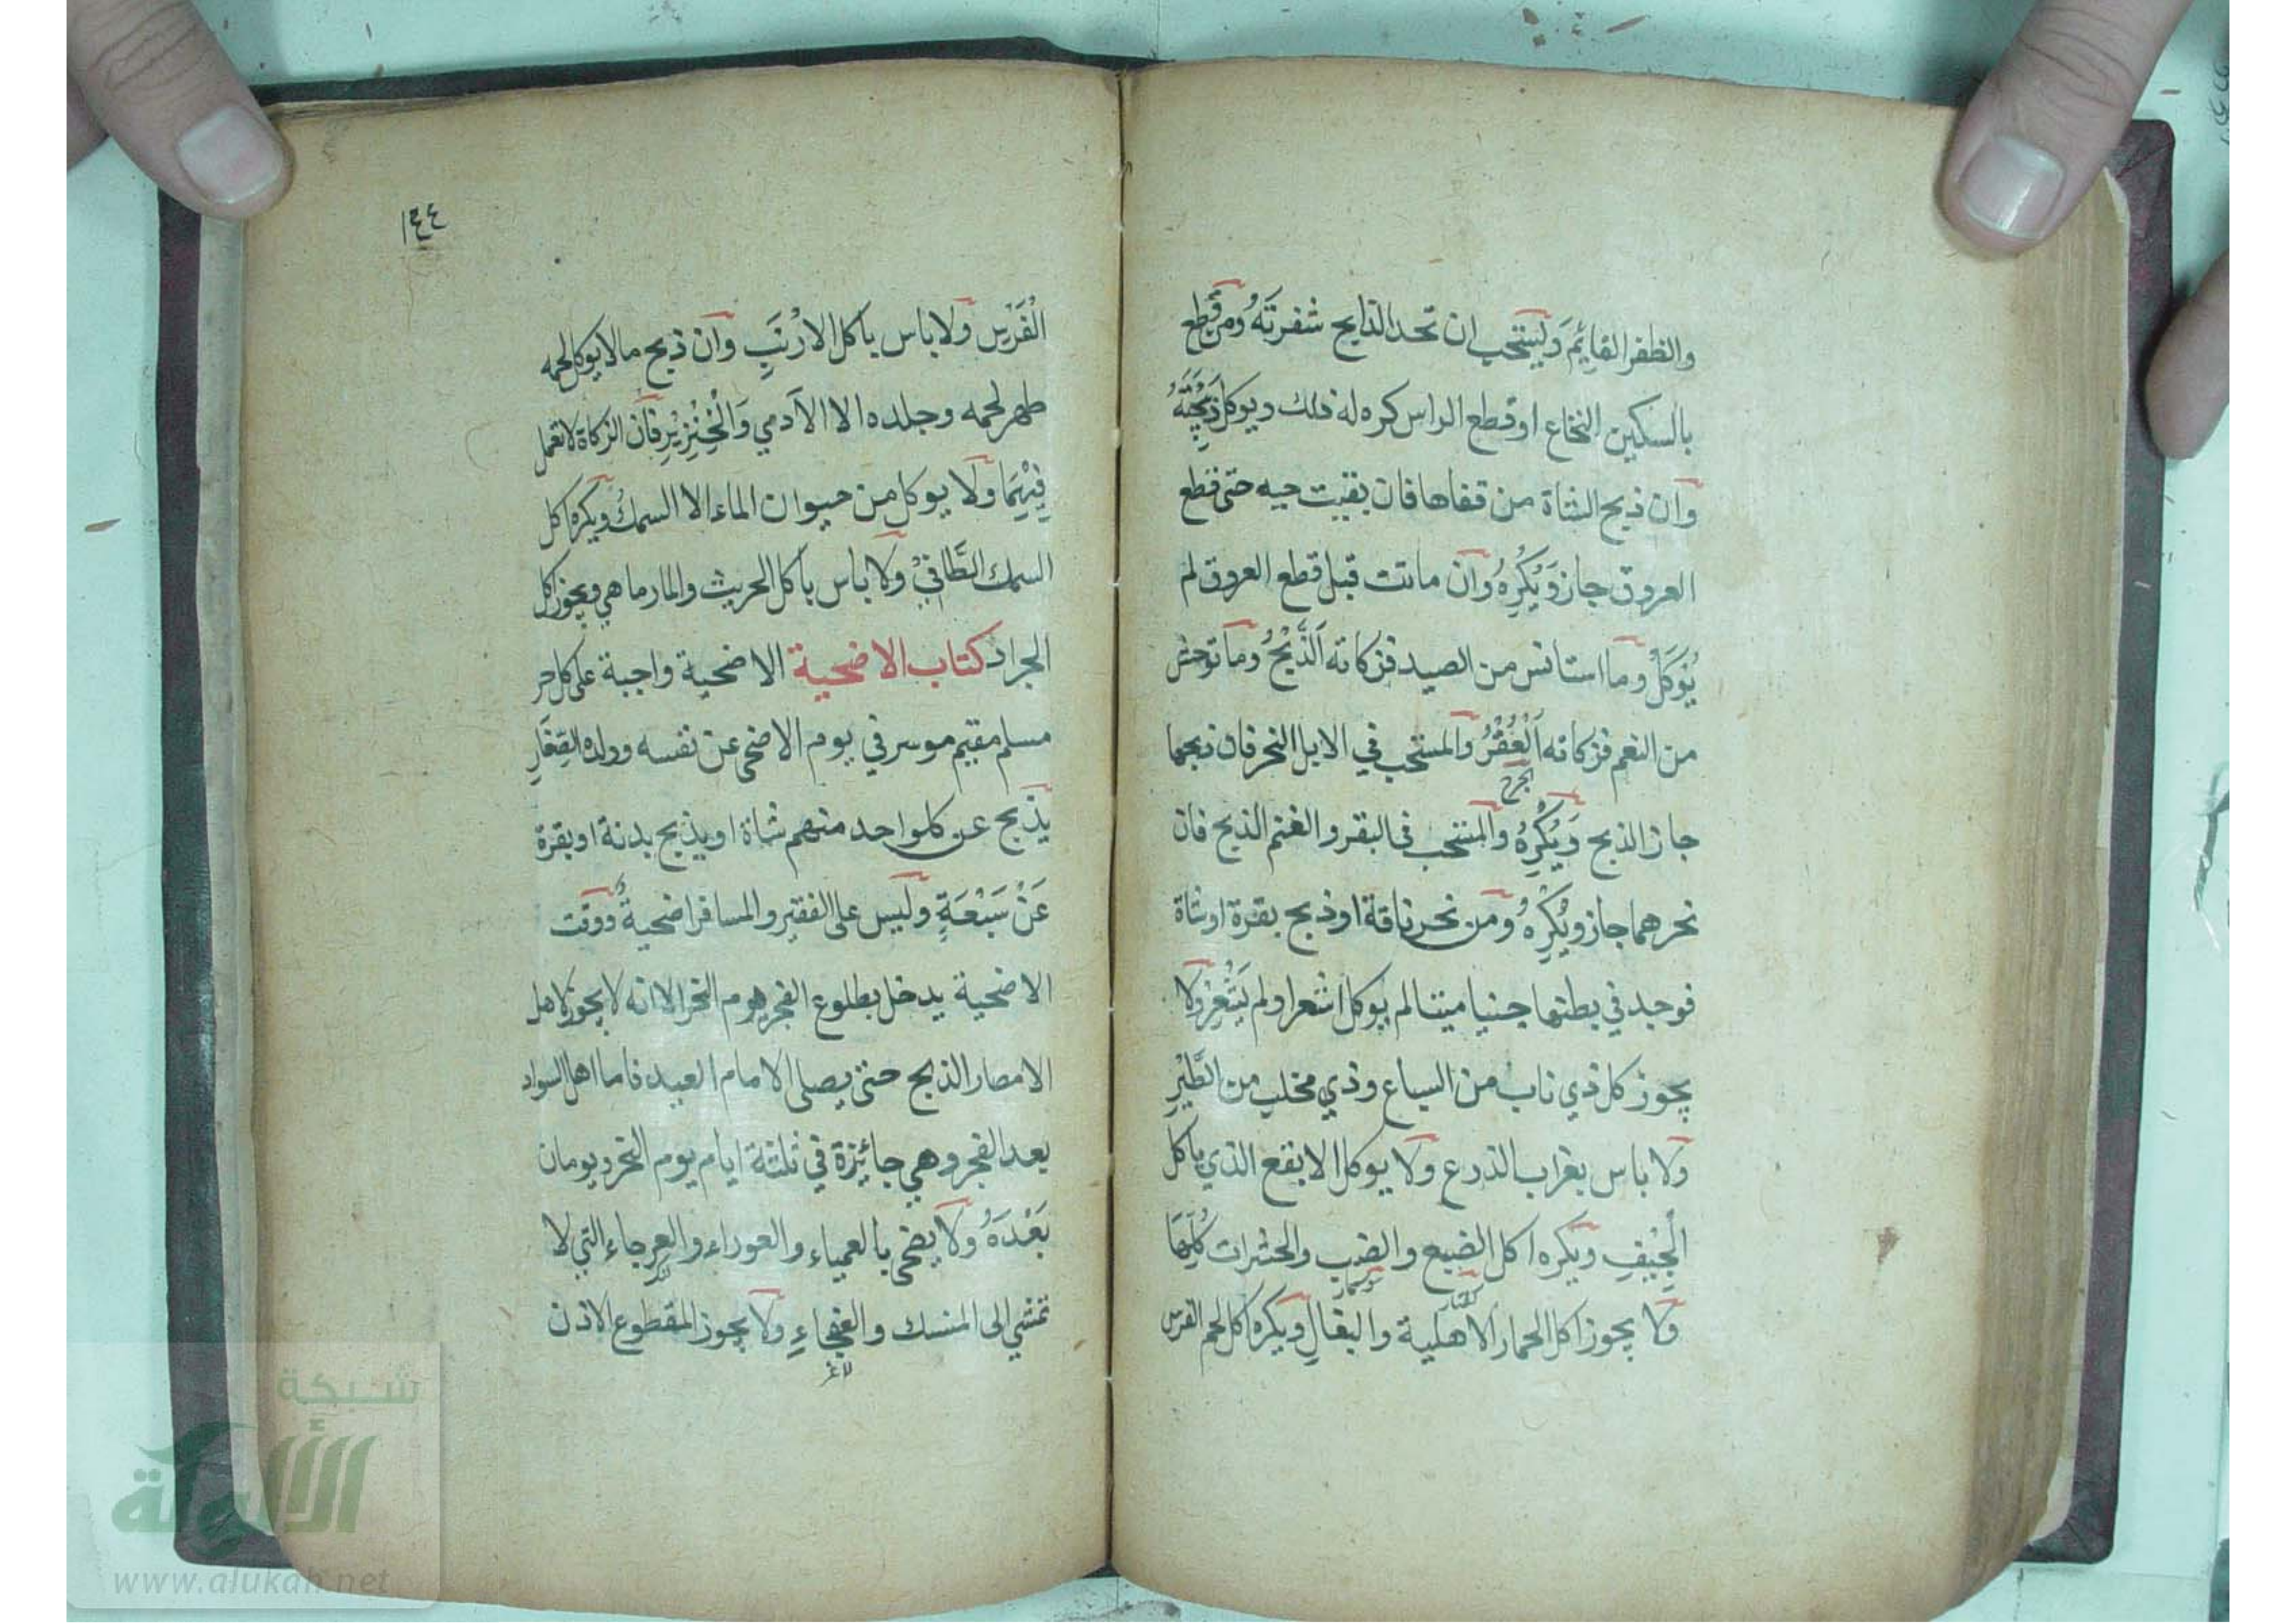 والظفر القائِمَ وَيستحب ان تحد الذابح شفرتَهُ ومن قطع
بالسكين النخاع او قطع الراس كره له ذلك ويوكل ذَبِيْحَتُهُ
وان ذبح الشاة من قفاها فان بقيت حيه حتى قطع
العروق جاز وَيُكْرهُ وان ماتت قبل قطع العروق لم
يُوكَلْ وما استانس من الصيد فزكاته اَلذَّبْحُ وما توحش
من النعم فزكاته اَلْعُقْرُ والمستحب في الابل النحر فان ذبحها
الجرح
جاز الذبح وَيُكْرهُ والمستحب فى البقر والغنم الذبح فان
نحرهما جاز ويُكْرِهُ ومن نحر ناقة او ذبح بقرة او شاة
فوجد في بطنها جنيا ميتا لم يوكل اشعر او لم يَشْعِرْ ولا
يجوز كل ذي ناب من السباع وذي مخلب من الطَّيْرِ
ولا باس بغراب الذرع ولا يوكل الابقع الذي ياكل
الْجِيْفِ ويكره اكل الضبع والضب والحشرات كُلِّهَا
ولا يجوز اكل الحمار الاهلية والبغالِ ويكره اكل لحم الفرس
١٤٤
الْفَرَسِ ولا باس ياكل الارْنَبِ وان ذبح مالا يوكل لحمه
طهر لحمه وجلده الا الآدمي وَالْخِنْزِيْرِ فان الزكاة لا تعمل
فِيْهِمَا ولا يوكل من حيوان الماء الا السمكُ ويكره اكل
السمك الطَّافِيْ ولا باس باكل الجريث والمارماهي ويجوز اكل
الجراد كتاب الاضحية الاضحية واجبة على كل حر
مسلم مقيم موسر في يوم الاضحى عن نفسه وولده الصِغَارِ
يذبح عن كلواحد منهم شاة او يذبح بدنة او بقرة
عَنْ سَبْعَةٍ وليس على الفقير والمسافر اضحيةٌ ووقت
الاضحية يدخل بطلوع الفجر يوم النحر الا انه لا يجوز لاهل
الامصار الذبح حتى يصلى الامام العيد فاما اهل السواد
بعد الفجر وهي جائزة في ثلثة ايام يوم النحر ويومان
بَعْدَهُ ولا يضحى بالعمياء والعوراء والعرجاء التي لا
تمشي الى المنسك والعجفاءِ ولا يجوز المقطوع الاذن
شبكة
الألوكة
www.alukah.net